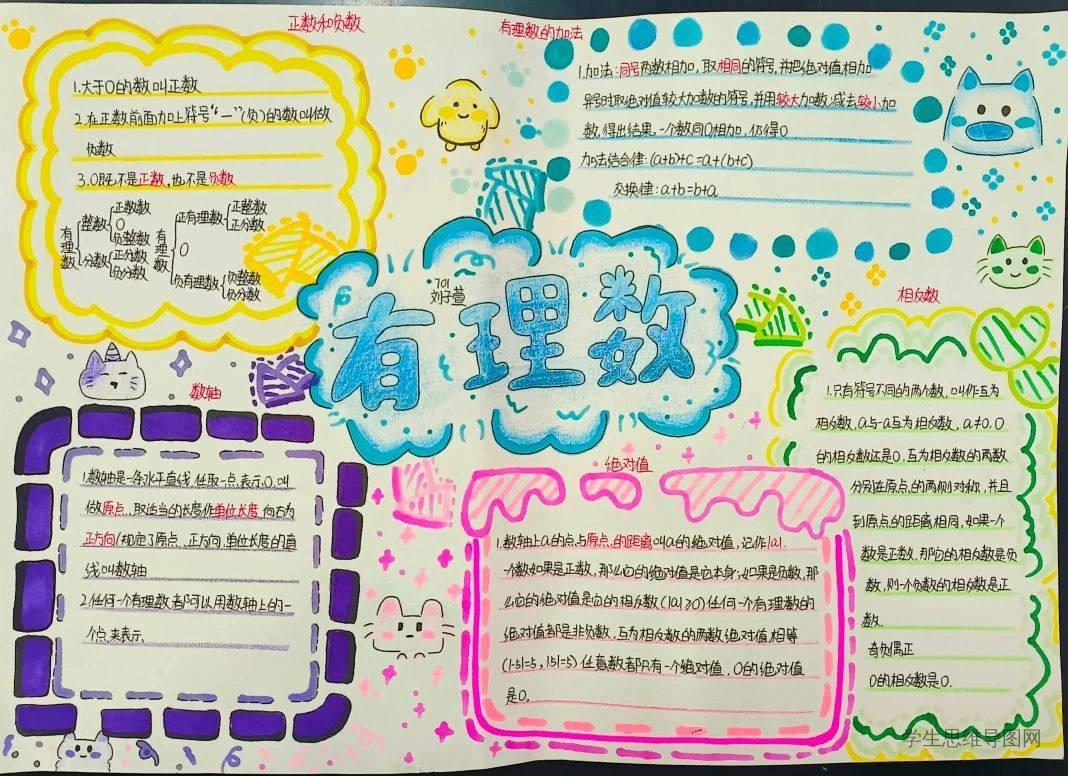 正数和负数
1.大于0的数叫正数
2.在正数前面加上符号“—”(负)的数叫做
负数
3.0既不是正数,也不是负数
有理数
整数
正整数
0
负整数
分数
正分数
负分数
有理数
正有理数
正整数
正分数
0
负有理数
负整数
负分数
有理数的加法
1.加法:同号两数相加,取相同的符号,并把绝对值相加
异号时取绝对值较大加数的符号,并用较大加数减去较小加
数,得出结果,一个数同0相加,仍得0
加法结合律:(a+b)+c=a+(b+c)
交换律:a+b=b+a
701
刘子萱
有理数
数轴
1.数轴是一条水平直线,任取一点表示0,叫
做原点,取适当的长度作单位长度,向右为
正方向(规定了原点、正方向、单位长度的直
线叫数轴
2.任何一个有理数都可以用数轴上的一
个点来表示
绝对值
1.数轴上a的点与原点的距离叫a的绝对值,记作|a|.
一个数如果是正数,那么它的绝对值是它本身;如果是负数,那
么它的绝对值是它的相反数(|a|≥0)任何一个有理数的
绝对值都是非负数,互为相反数的两数绝对值相等
(|-5|=5,|5|=5)任意数都只有一个绝对值,0的绝对值
是0。
相反数
1.只有符号不同的两个数,叫作互为
相反数,a与-a互为相反数,a≠0,0
的相反数还是0,互为相反数的两数
分别在原点的两侧对称,并且
到原点的距离相同,如果一个
数是正数,那它的相反数是负
数,则一个负数的相反数是正
数.
奇负偶正
0的相反数是0.
学生思维导图网